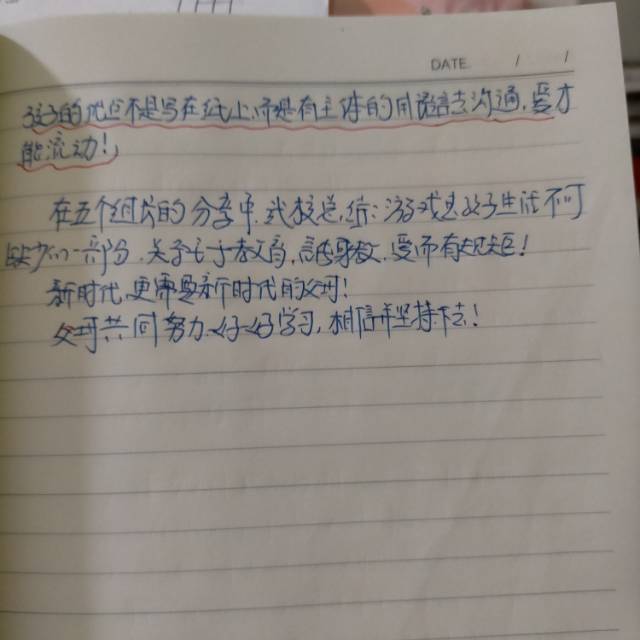 DATE / /
孩子的地位不是写在纸上,而是有主体的用语言去沟通,爱才
能流动!
在五个组长的分享中,我校总结:游戏是孩子生活不可
缺少的一部份,关于教育,言传身教,爱而有规矩!
新时代,更需要新时代的父母!
父母共同努力,好好学习,相信并坚持下去!